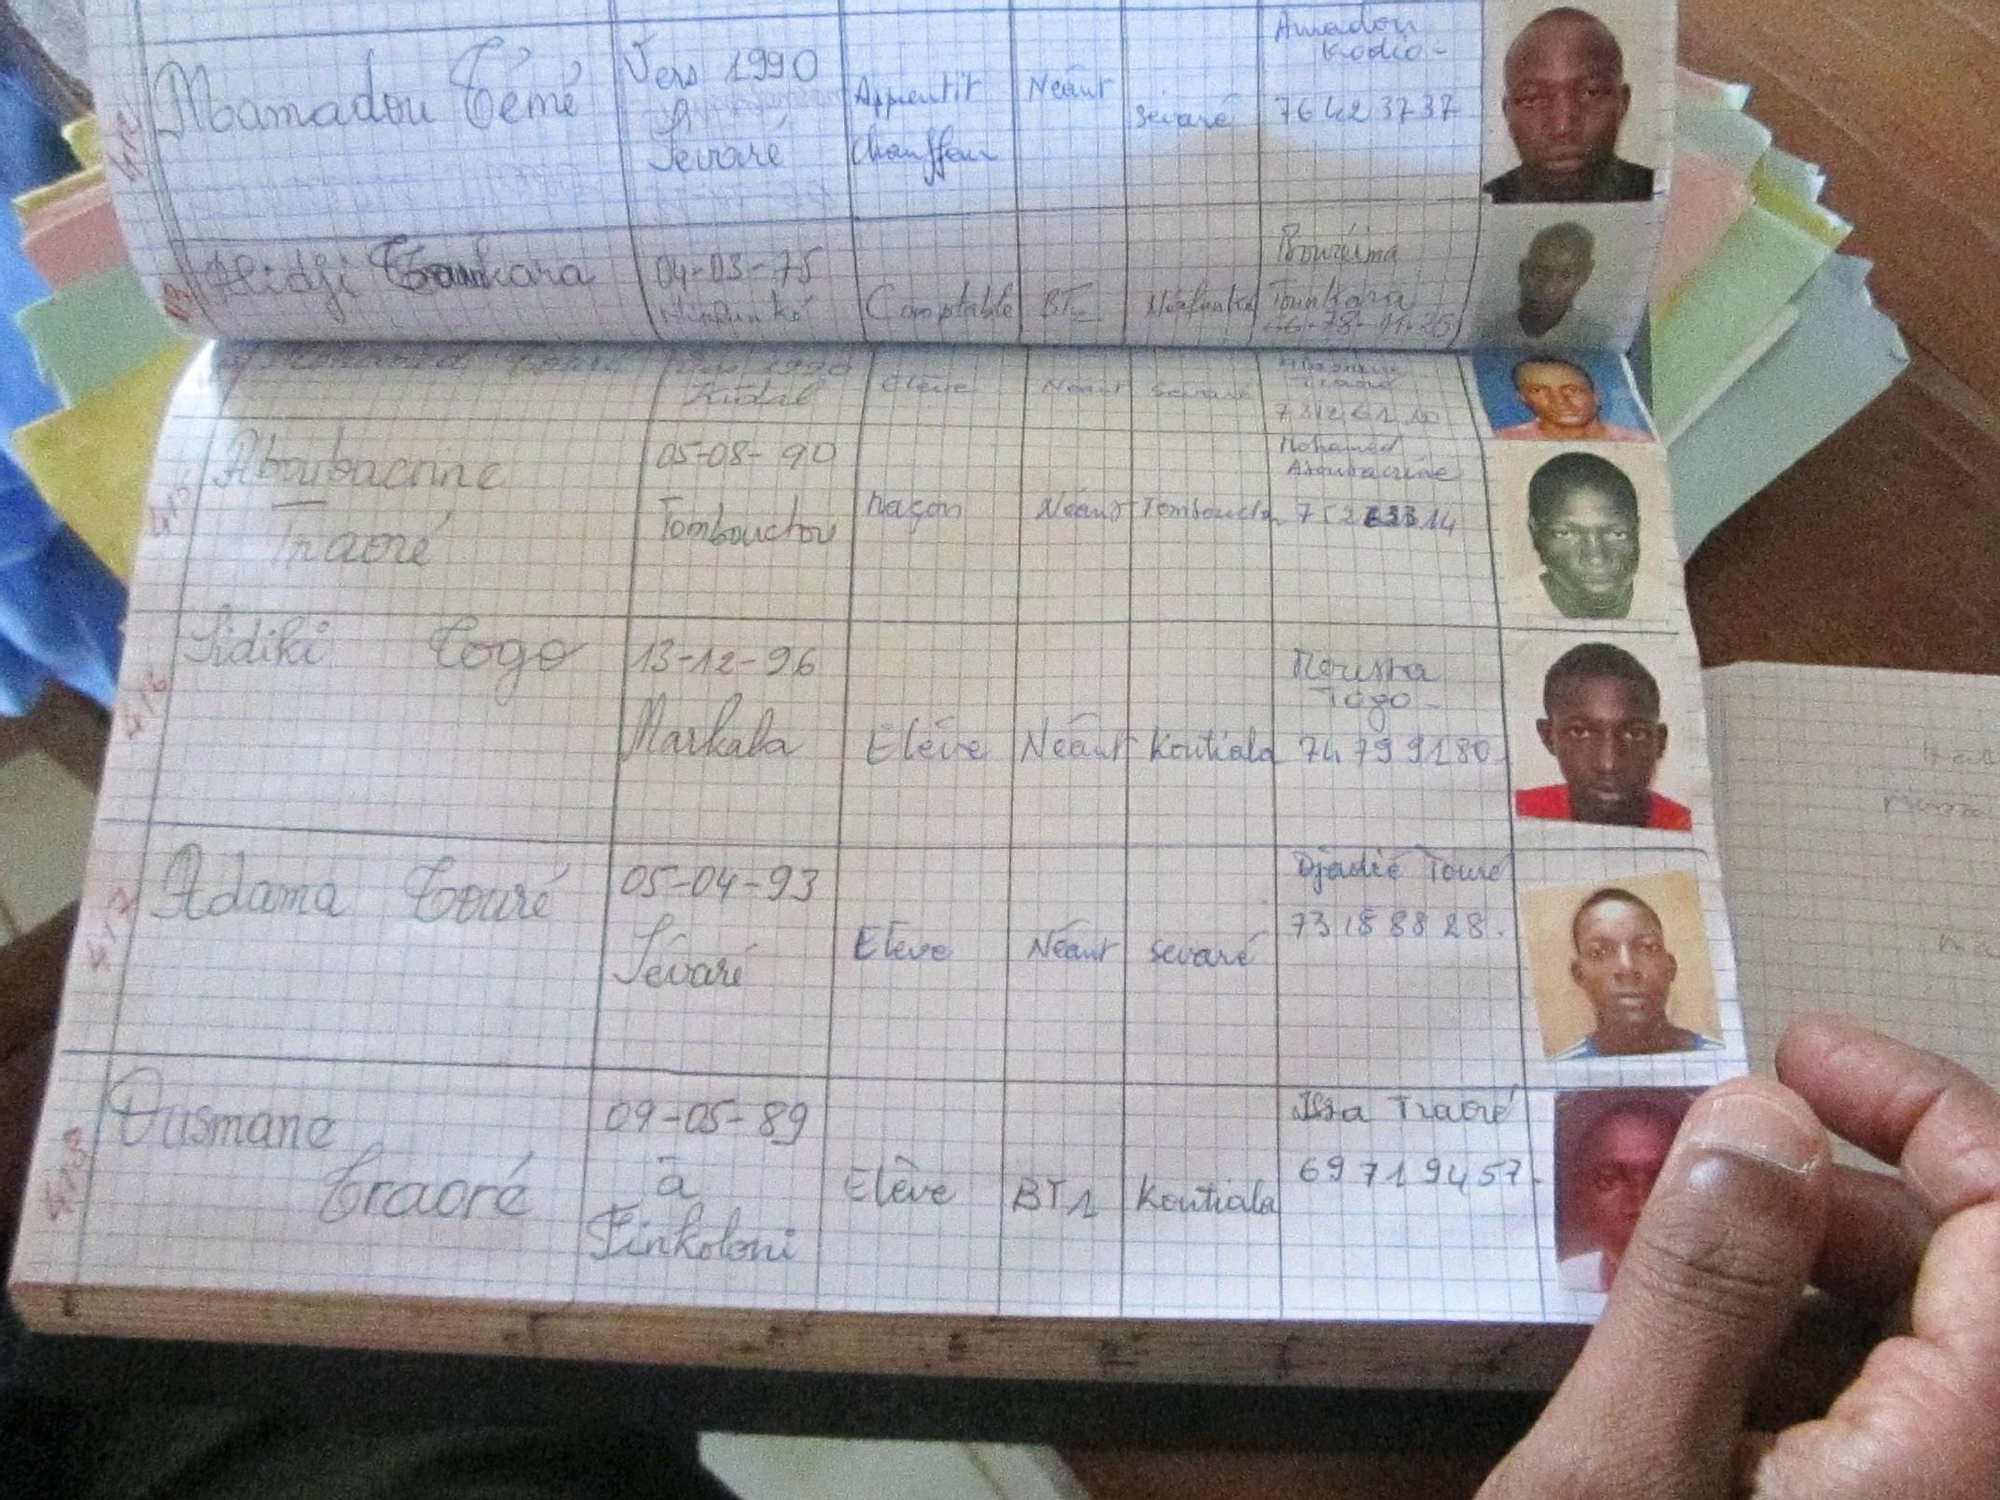 412 Mamadou Témé Vers 1990 Sévaré Apprentit Chauffeur Néant Sévaré Amadou Kodio- 76423737
Hidji Tounkara 04-03-75 Niafunké Comptable BT2 Niafunké Boureima Tounkara
1990 Kidal Elève Néant Sévaré Traoré
415 Aboubacrine Traoré 05-08-90 Tombouctou Maçon Néant Tombouctou Mohamed Aboubacrine
416 Sidiki Togo 13-12-96 Markala Elève Néant Koutiala Moussa Togo- 74799180
417 Adama Touré 05-04-93 Sévaré Elève Néant Sevaré Djadié Touré 73188828.
418 Ousmane Traoré 09-05-89 à Finkoloni Elève BT1 Koutiala Issa Traoré 69719457.